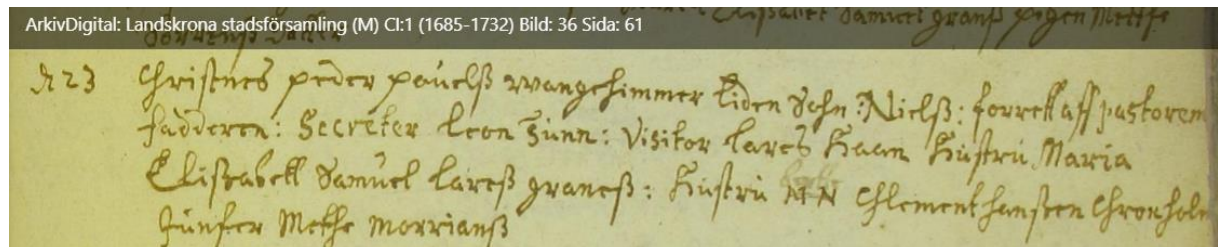 ArkivDigital: Landskrona stadsförsamling (M) CI:1 (1685-1732) Bild: 36 Sida: 61
Elisabet Samuel granß pigen Metthe
d 23 Christnes peder pouelß wangehimmer liden Sohn: Nielß: forrett aff pastorem
fadderen: Secreter leon Zinn: Visitor lares Haan Hustru Maria
Elisabett Samuel lareß graneß: Hustru MN Chlement hansten Chronholm
Junfer Methe morrianß